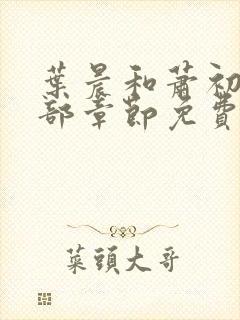 葉晨和蕭初
部章節免費
菜頭大哥